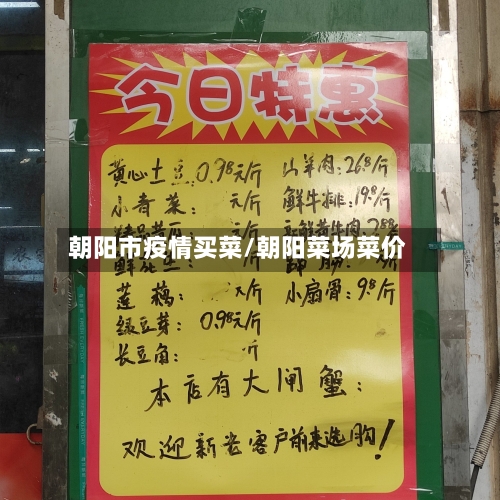 今日特惠
黄心土豆 0.98元/斤
山羊肉:26.8/斤
小青菜: 元/斤
鲜牛排:19.8/斤
元/斤
朝阳市疫情买菜/朝阳菜场菜价
莲藕: 元/斤
小扇骨:9.8/斤
绿豆芽: 0.98元/斤
长豆角: 斤
本店有大闸蟹:
欢迎新老客户前来选购!